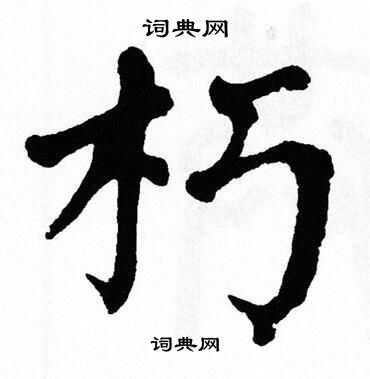 词典网
朽
词典网